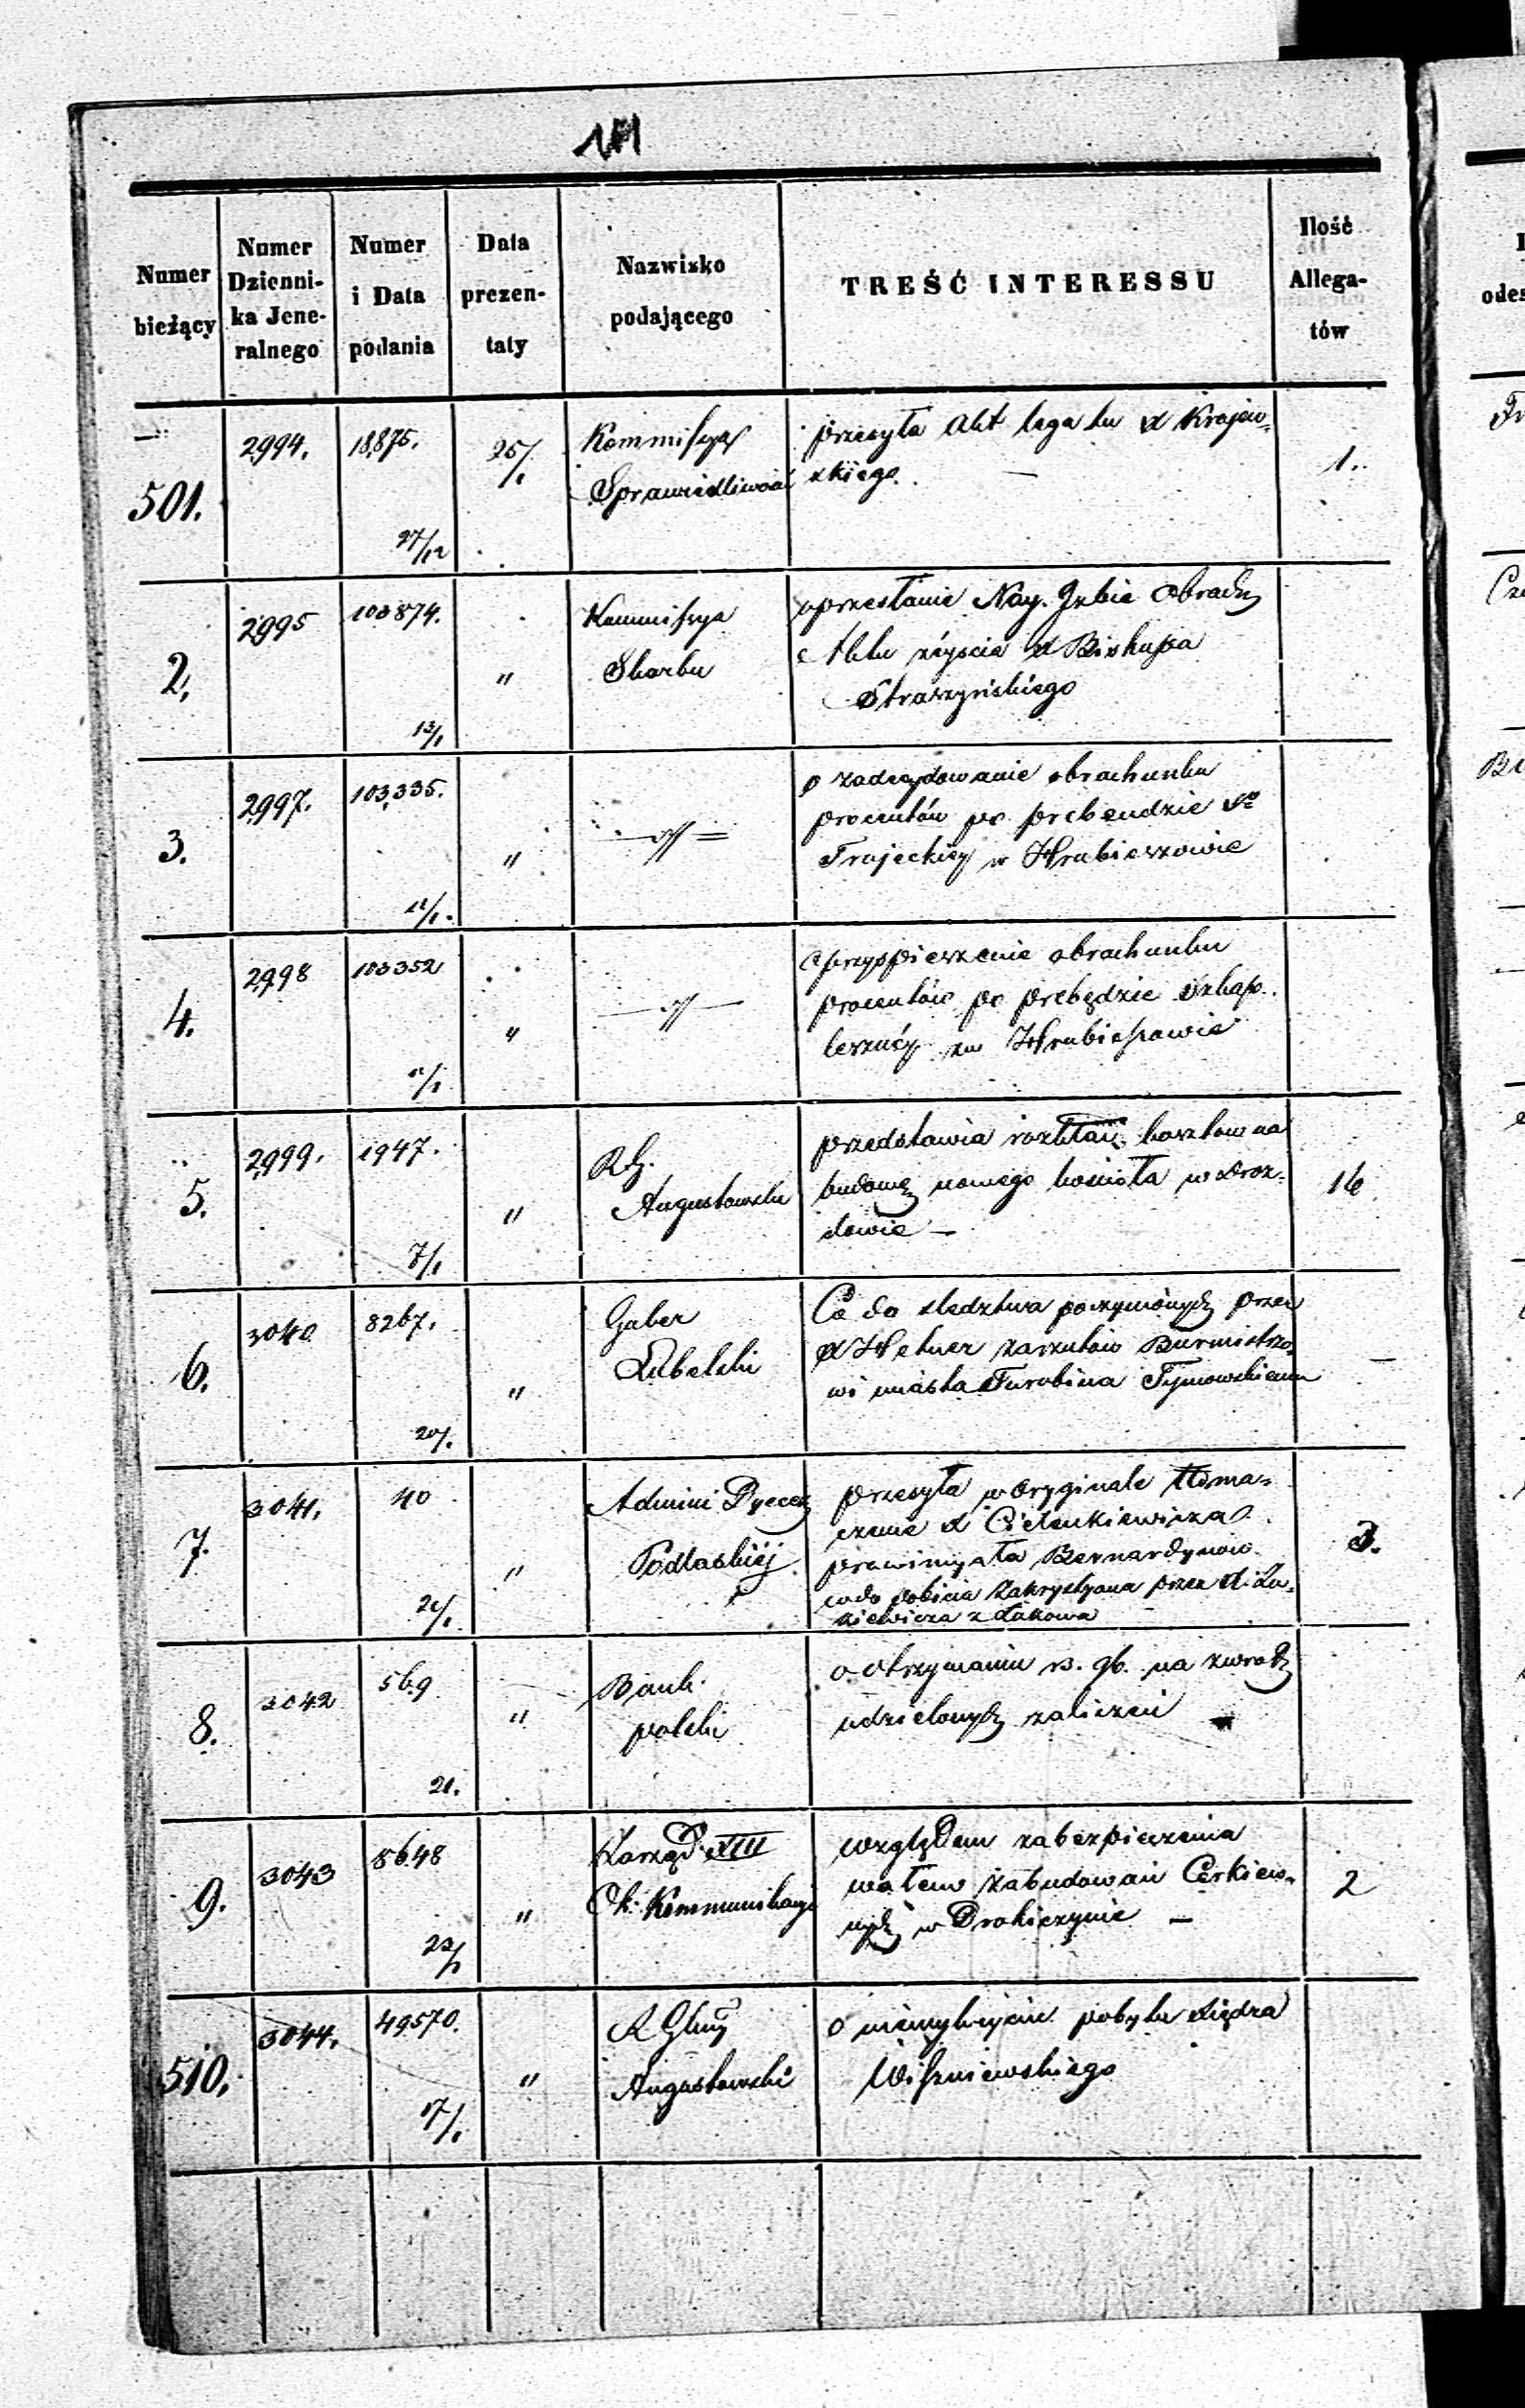 Numer bieżący
Numer Dzienni-ka Jene-ralnego
Numer i Data podania
Data prezen-taty
Nazwisko podającego
TREŚĆ INTERESSU
Ilość Allega-tów
501. 2994. 18,875. 27/12 25/1
Kommissya
Sprawiedliwości
przesyła akt legatu X Krajew-
skiego.
1.
2. 2995 103874. 13/1 "
Kommissya
Skarbu
o przesłanie Nay. Izbie Obrach
Aktu zejścia X Biskupa
Straszyńskiego
3. 2997. 103,335. 11/1. "
—//—
o zadecydowanie obrachunku
procentów po prebendzie
Trojeckiey w Hrubieszowie
4. 2998 103352 11/1 "
—//—
o przyspieszenie obrachunku
procentów po prebędzie Szkap-
lerzney w Hrubieszowie
5. 2999. 1947. 7/1 "
R G.
Augustowski
przedstawia rozkład kosztow na
budowę nowego kościoła w Droz-
dowie —
16
6. 3040 8267. 20/1 "
Guber
Lubelski
Co do śledztwa poczynionych przez
X Hetner zarzutów Burmistrzo-
wi miasta Turobina Tymowskiemu
—
7. 3041. 40 21/1 "
Admini Dyecez
Podlaskiéj
przesyła w oryginale tłoma-
czenie X
Bernardynow
co do pobicia Zakrystyana przez X. Łu-
kiewicza z Łukowa
3.
8. 3042 569 21. "
Bank
polski
o otrzymaniu rs. 96. na zwrot
udzielonych zaliczeń
9. 3043 8648 22/1 "
Zarząd XIII
Ok. Kommunikacyi
względem zabezpieczenia
wałem zabudowań Cerkiew-
nych w Drohiczynie —
2
510. 3044. 49570. 17/1 "
R Gbny
Augustowski
o niewykryciu pobytu Xiędza
Wiszniewskiego